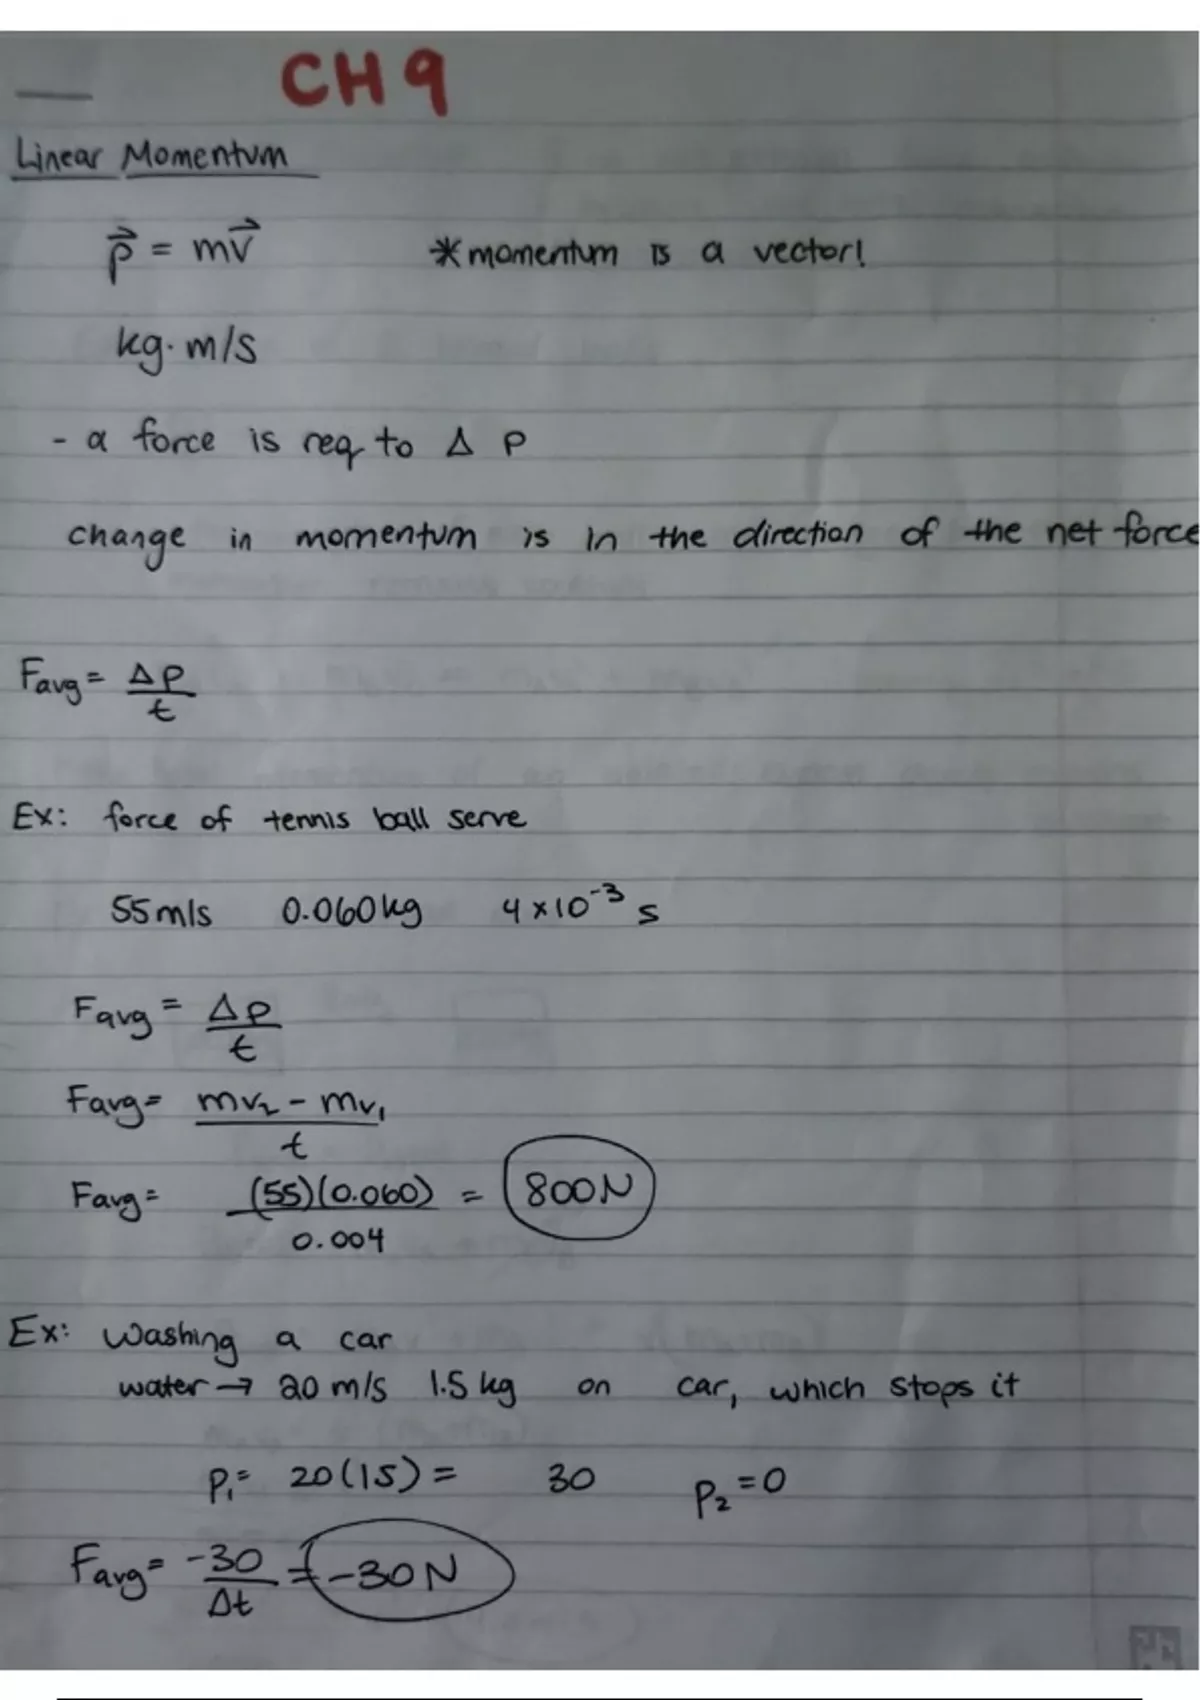 CH 9
Linear Momentum
p⃗ = mv⃗ *momentum is a vector!
kg·m/s
- a force is req to Δ P
change in momentum is in the direction of the net force
Favg = ΔP/t
Ex: force of tennis ball serve
55m/s 0.060kg 4×10⁻³ s
Favg = ΔP/t
Favg = mv₂ - mv₁/t
Favg = (55)(0.060)/0.004 = 800N
Ex: washing a car
water → 20 m/s 1.5 kg on car, which stops it
P₁= 20(15) = 30 P₂=0
Favg= -30/Δt = -30N